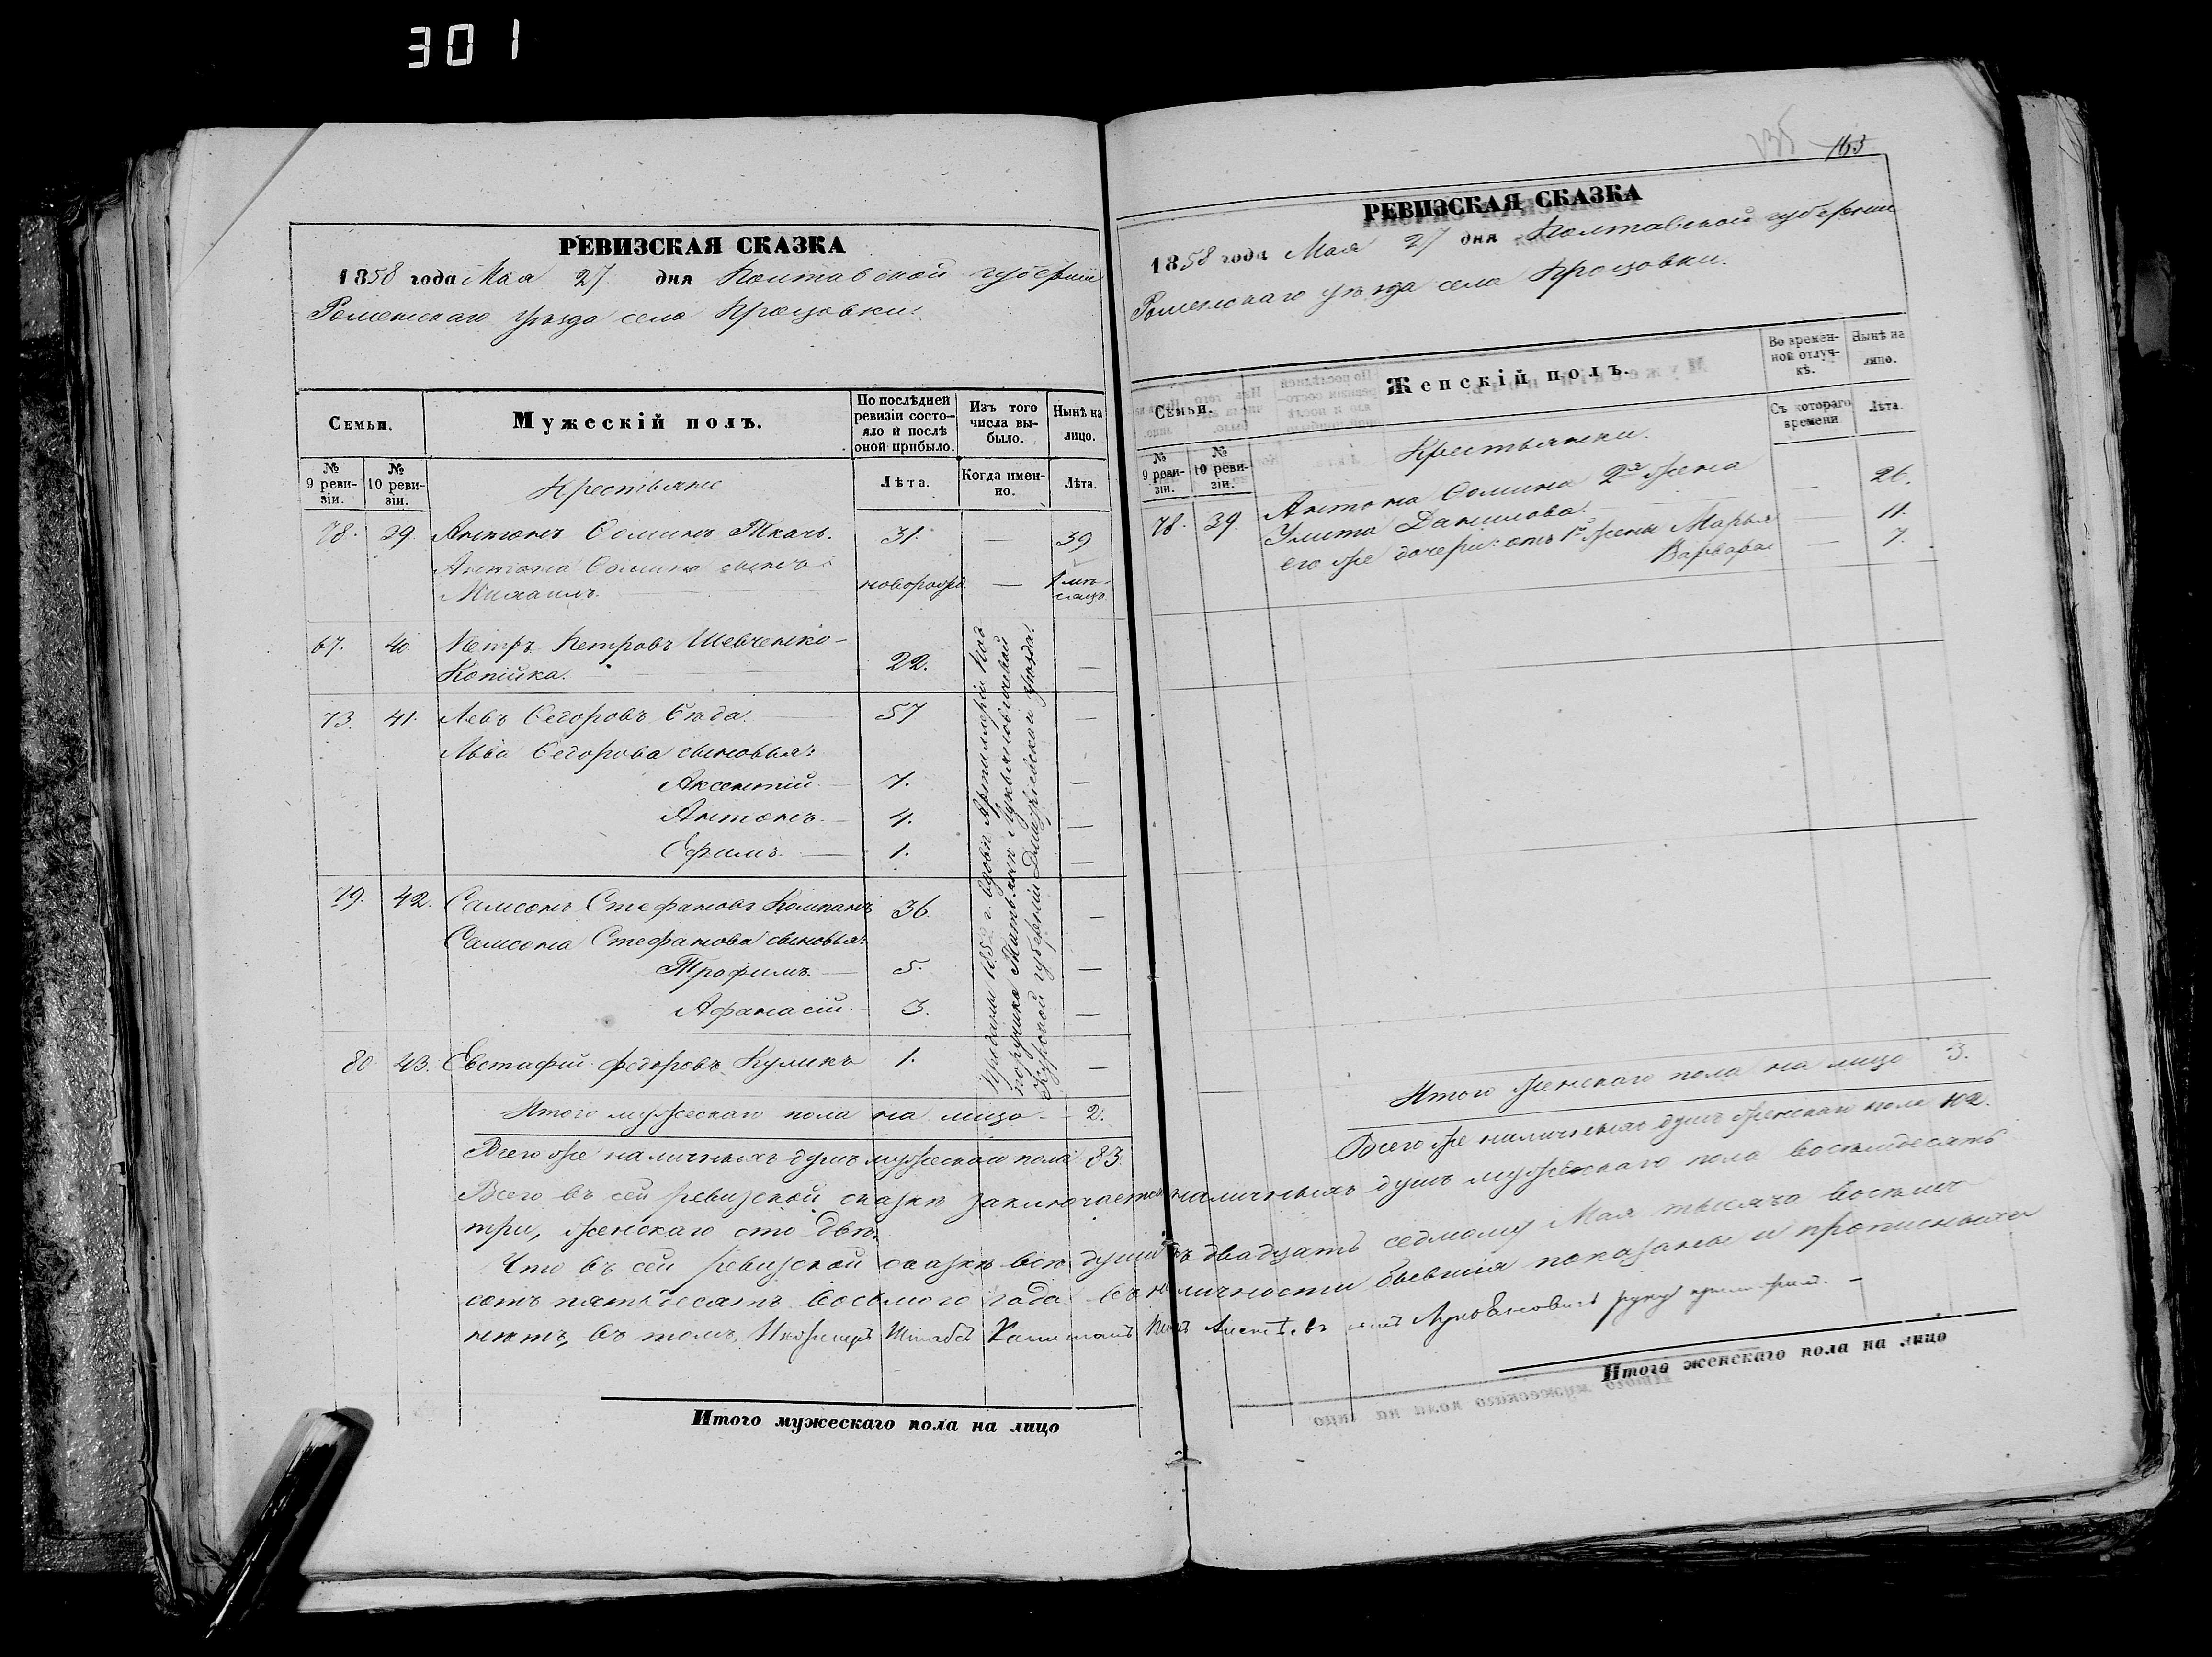 301
РЕВИЗСКАЯ СКАЗКА
1858 года Мая 27 дня Полтавской губерніи
Роменскаго уѣзда села
Семьи.
Мужескій полъ.
По послѣдней ревизіи состояло и послѣ оной прибыло.
Изъ того числа выбыло.
Нынѣ на лицо.
№ 9 ревизіи.
№ 10 ревизіи.
Крестьяне
Лѣта.
Когда именно.
Лѣта.
78. 39. Антонъ Ѳоминъ Ткачь. 31. — 39
Антона Ѳомина сынъ
Михаилъ. новорожд. — 1 мѣсяцъ
67. 40. Петръ Петровъ Шевченко-
Копійка. 22. —
73. 41. Левъ Ѳедоровъ 57 —
Льва Ѳедорова сыновья:
Аксентій. — 7. —
Антонъ. — 4. —
Ефимъ. — 1. —
79. 42. Самсонъ Стефановъ 36 —
Самсона Стефанова сыновья:
Трофимъ. — 5. —
Афанасій. — 3. —
80. 43. Евстафій Федоровъ Куликъ 1. —
Проданы 1852 г. вдовѣ Артиллеріи Под
поручика
Курской губерніи Дмитріевскаго уѣзда.
Итого мужескаго пола на лицо — 2.
Всего же наличныхъ душъ мужескаго пола 83.
Всего въ сей ревизской сказкѣ заключается наличныхъ душъ мужескаго пола восемьдесятъ
три, женскаго сто двѣ.
Что въ сей ревизской сказкѣ всѣ души къ двадцать седьмому Мая тысяча восемь
сотъ пятьдесятъ восьмого года въ наличности бывшія показаны и прописныхъ
нетъ, въ томъ Инженеръ Штабсъ Капитанъ руку приложилъ. —
Итого мужескаго пола на лицо
163
РЕВИЗСКАЯ СКАЗКА
1858 года Мая 27 дня Полтавской губерніи
Роменскаго уѣзда села
Семьи.
Женскій полъ.
Во временной отлучкѣ.
Нынѣ на лицо.
№ 9 ревизіи.
№ 10 ревизіи.
Крестьянки.
Съ котораго времени
Лѣта.
78. 39. Антона Ѳомина 2я жена
Улита Данилова. — 26.
его же дочери: отъ 1й жены Марья — 11.
Варвара — 7.
Итого женскаго пола на лицо 3.
Всего же наличныхъ душъ женскаго пола 102.
Итого женскаго пола на лицо